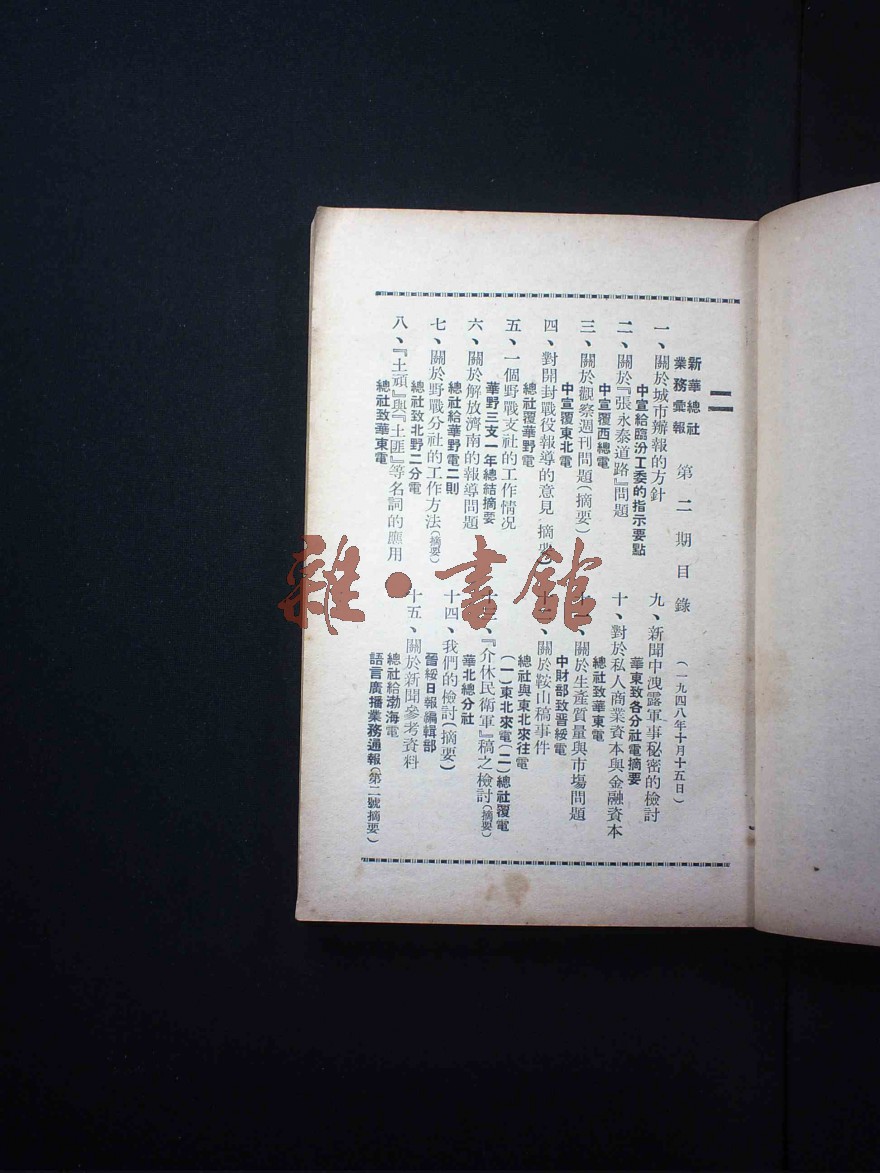 二
新華總社
業務彙報
第二期目錄
(一九四八年十月十五日)
一、關於城市辦報的方針
中宣給臨汾工委的指示要點
二、關於『張永泰道路』問題
中宣覆西總電
三、關於觀察週刊問題(摘要)
中宣覆東北電
四、對開封戰役報導的意見(摘要)
總社覆華野電
五、一個野戰支社的工作情況
華野三支一年總結摘要
六、關於解放濟南的報導問題
總社給華野電二則
七、關於野戰分社的工作方法(摘要)
總社致北野二分電
八、『土頑』與『土匪』等名詞的應用
總社致華東電
九、新聞中洩露軍事秘密的檢討
華東致各分社電摘要
十、對於私人商業資本與金融資本
總社致華東電
十一、關於生產質量與市場問題
中財部致晋綏電
十二、關於鞍山稿事件
總社與東北來往電
(一)東北來電(二)總社覆電
十三、『介休民衛軍』稿之檢討(摘要)
華北總分社
十四、我們的檢討(摘要)
晋綏日報編輯部
十五、關於新聞參考資料
總社給渤海電
語言廣播業務通報(第二號摘要)
雜·書館